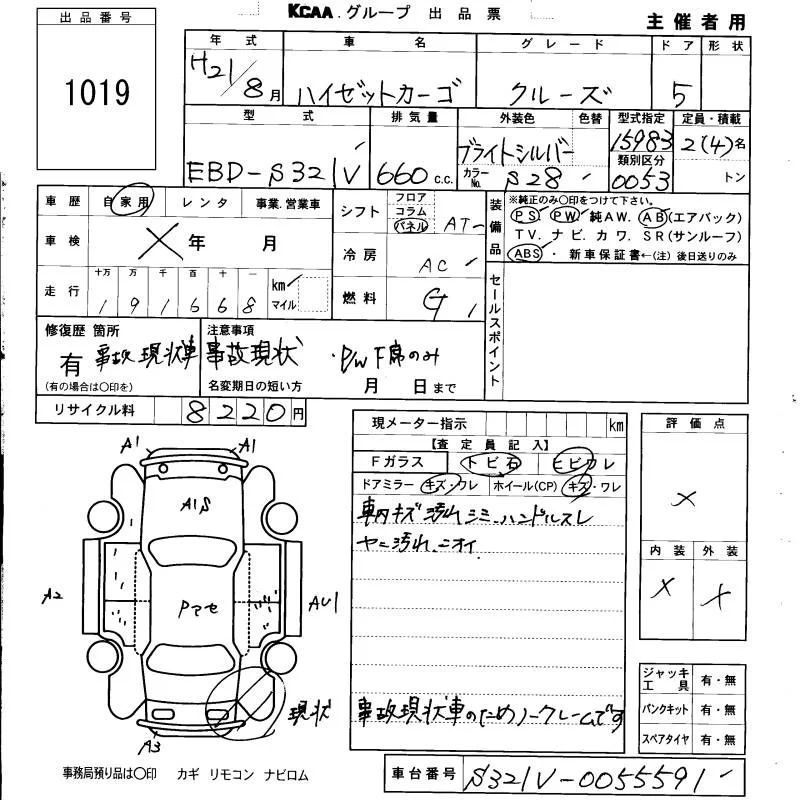 KCAA.グループ 出品票
主催者用
出品番号
1019
年式 車名 グレード ドア 形状
H21/8月 ハイゼットカーゴ クルーズ 5
型式 排気量 外装色 色替 型式指定 定員・積載
EBD-S321V 660c.c. ブライトシルバー 15983 2(4)名
カラーNo. S28 類別区分 0053 トン
車歴 自家用 レンタ 事業.営業車
車検 年 月
走行 十万 万 千 百 十 一
191668 km マイル
シフト フロア コラム パネル AT
冷房 AC
燃料 G
装備品 ※純正のみ○印をつけて下さい。
PS PW 純AW. AB(エアバック)
TV. ナビ. カワ. SR(サンルーフ)
ABS ・ 新車保証書←(注)後日送りのみ
セールスポイント
修復歴 箇所 注意事項
有 事故現状車 事故現状 ・P/W下席のみ
(有の場合は○印を) 名変期日の短い方 月 日まで
リサイクル料 8220円
現メーター指示 km
【査定員記入】
Fガラス トビ石 ヒビワレ
ドアミラー キズ・ワレ ホイール(CP) キズ・ワレ
車内キズ 汚れ シミ、ハンドルスレ
ヤニ汚れ、ニオイ
事故現状車のためノークレームです
評価点
×
内装 外装
× ×
A1 A1
A1S
A2
AU1
A3
現状
ジャッキ工具 有・無
パンクキット 有・無
スペアタイヤ 有・無
事務局預り品は○印 カギ リモコン ナビロム
車台番号 S321V-0055591